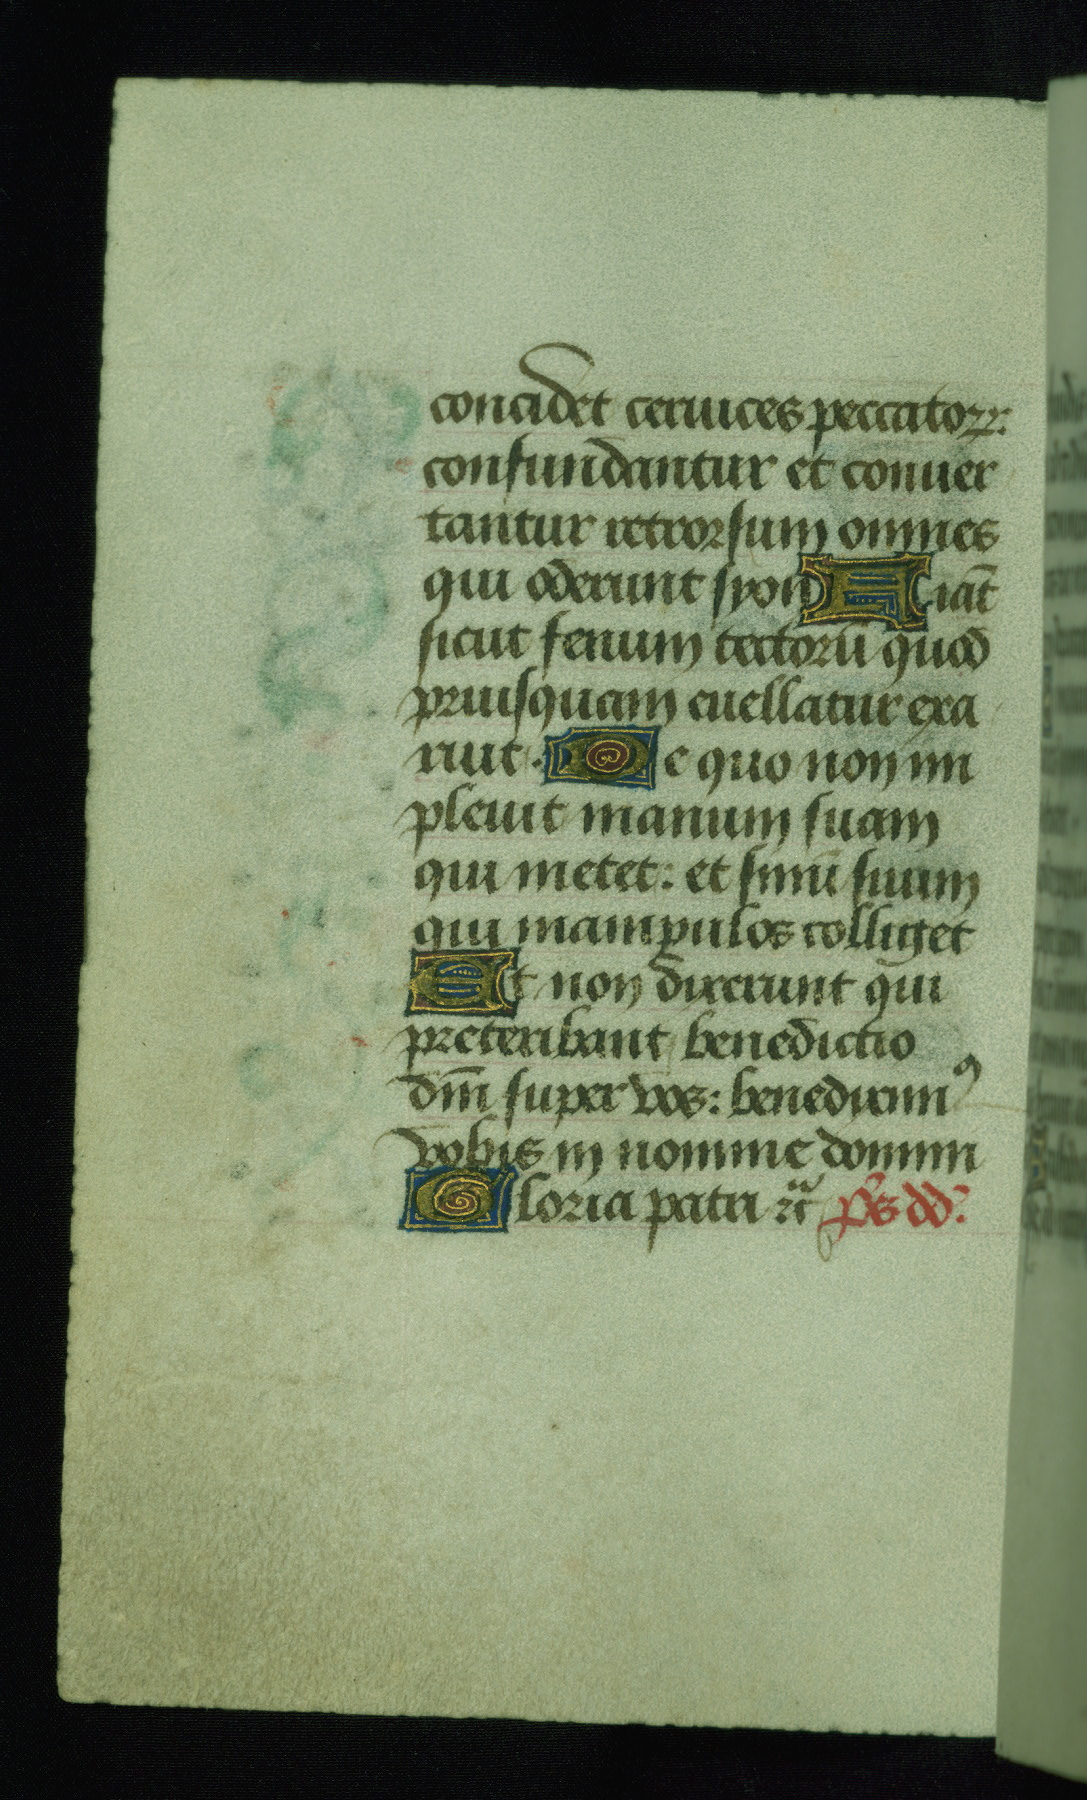 concidet ceruices peccatoꝝ:
confundantur et conuer
tantur retrorsum omnes
qui oderunt syon Fiāt
sicut fenum tectorū quod
priusquam euellatur exa
ruit. De quo non im
pleuit manum suam
qui metet: et sinū suum
qui manipulos colliget
Et non dixerunt qui
preteribant benedictio
dm̄ super vos: benedixim⁹
vobis in nomine domini
Gloria patri ⁊c̄ Ps̄ dd.